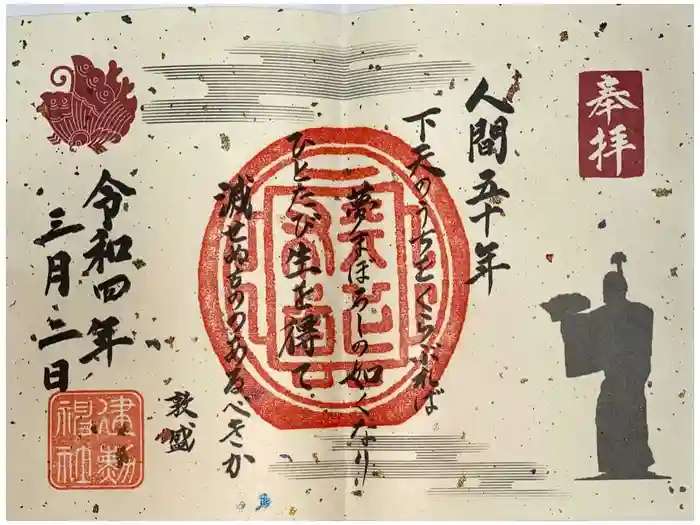 奉拝
人間五十年
下天のうちをくらぶれば
夢まぼろしの如くなり
ひとたび生を得て
滅せぬもののあるべきか
敦盛
令和四年
三月二日
建勲神社